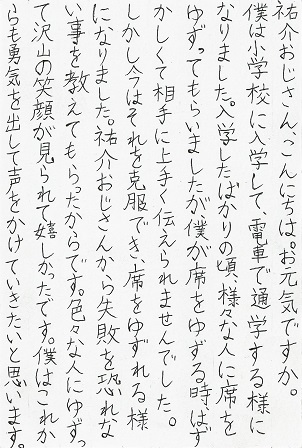 祐介おじさん、こんにちは。お元気ですか。
僕は小学校に入学して、電車で通学する様に
なりました。入学したばかりの頃、様々な人に席を
ゆずってもらいましたが僕が席をゆずる時はず
かしくて相手に上手く伝えられませんでした。
しかし今はそれを克服でき、席をゆずれる様
になりました。祐介おじさんから失敗を恐れな
い事を教えてもらったからです。色々な人にゆずっ
て沢山の笑顔が見られて嬉しかったです。僕はこれか
らも勇気を出して声をかけていきたいと思います。